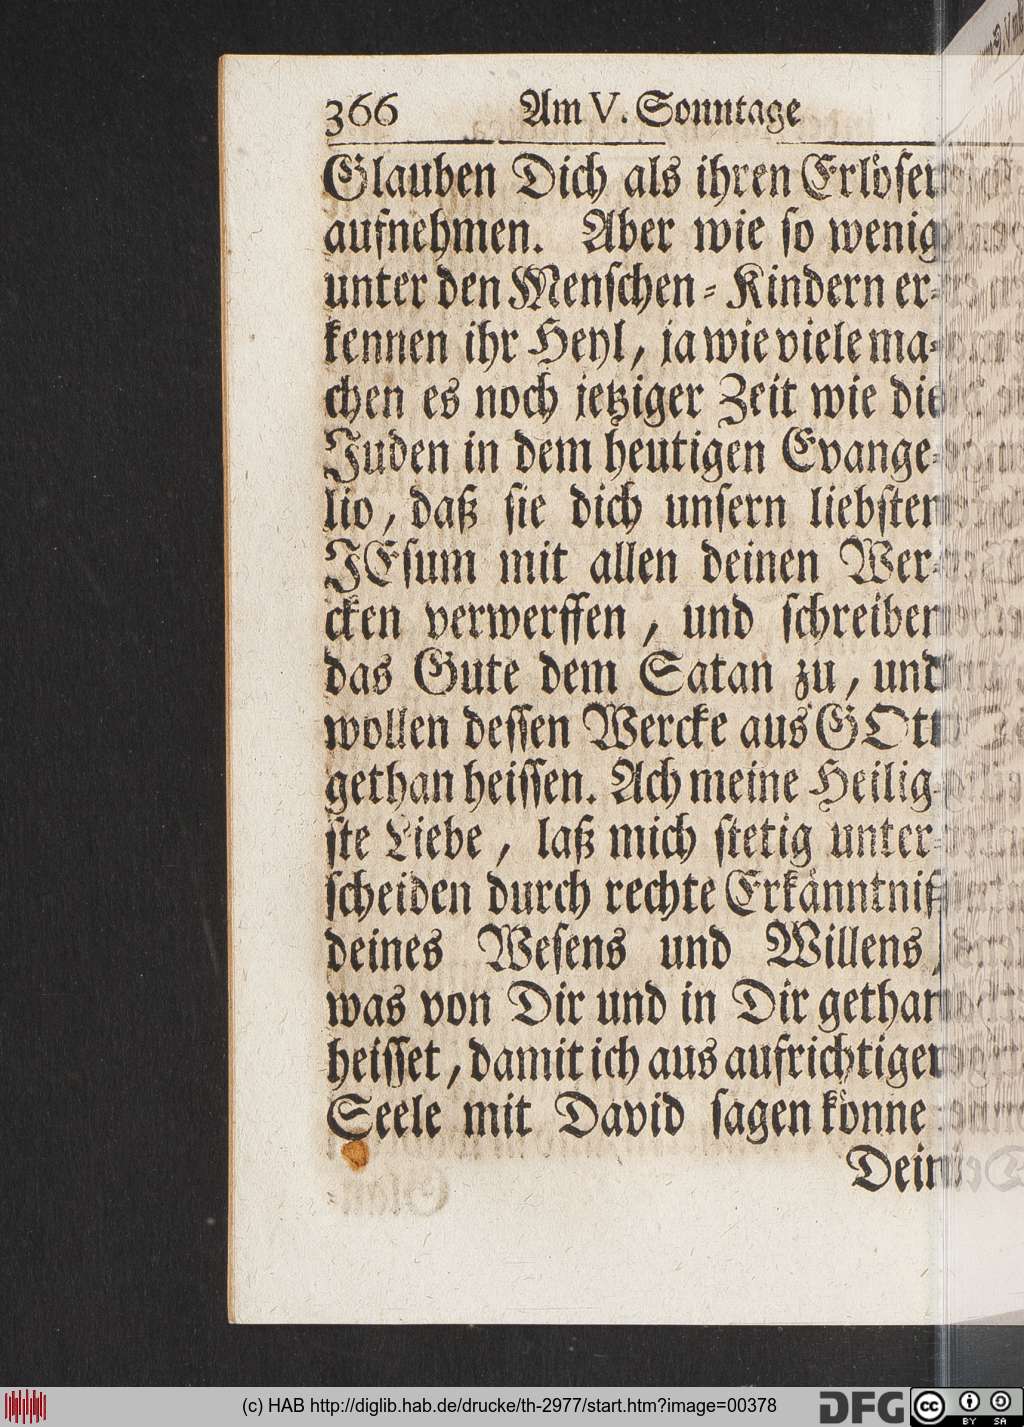 366 Am V. Sonntage
Glauben Dich als ihren Erlöser
aufnehmen. Aber wie so wenig
unter den Menschen-Kindern er-
kennen ihr Heyl, ja wie viele ma-
chen es noch jetziger Zeit wie die
Juden in dem heutigen Evange-
lio, daß sie dich unsern liebsten
JEsum mit allen deinen Wer-
cken verwerffen, und schreiben
das Gute dem Satan zu, und
wollen dessen Wercke aus GOtt
gethan heissen. Ach meine Heilig-
ste Liebe, laß mich stetig unter-
scheiden durch rechte Erkänntniß
deines Wesens und Willens,
was von Dir und in Dir gethan
heisset, damit ich aus aufrichtiger
Seele mit David sagen könne:
Dein
(c) HAB http://diglib.hab.de/drucke/th-2977/start.htm?image=00378
DFG
cc BY SA